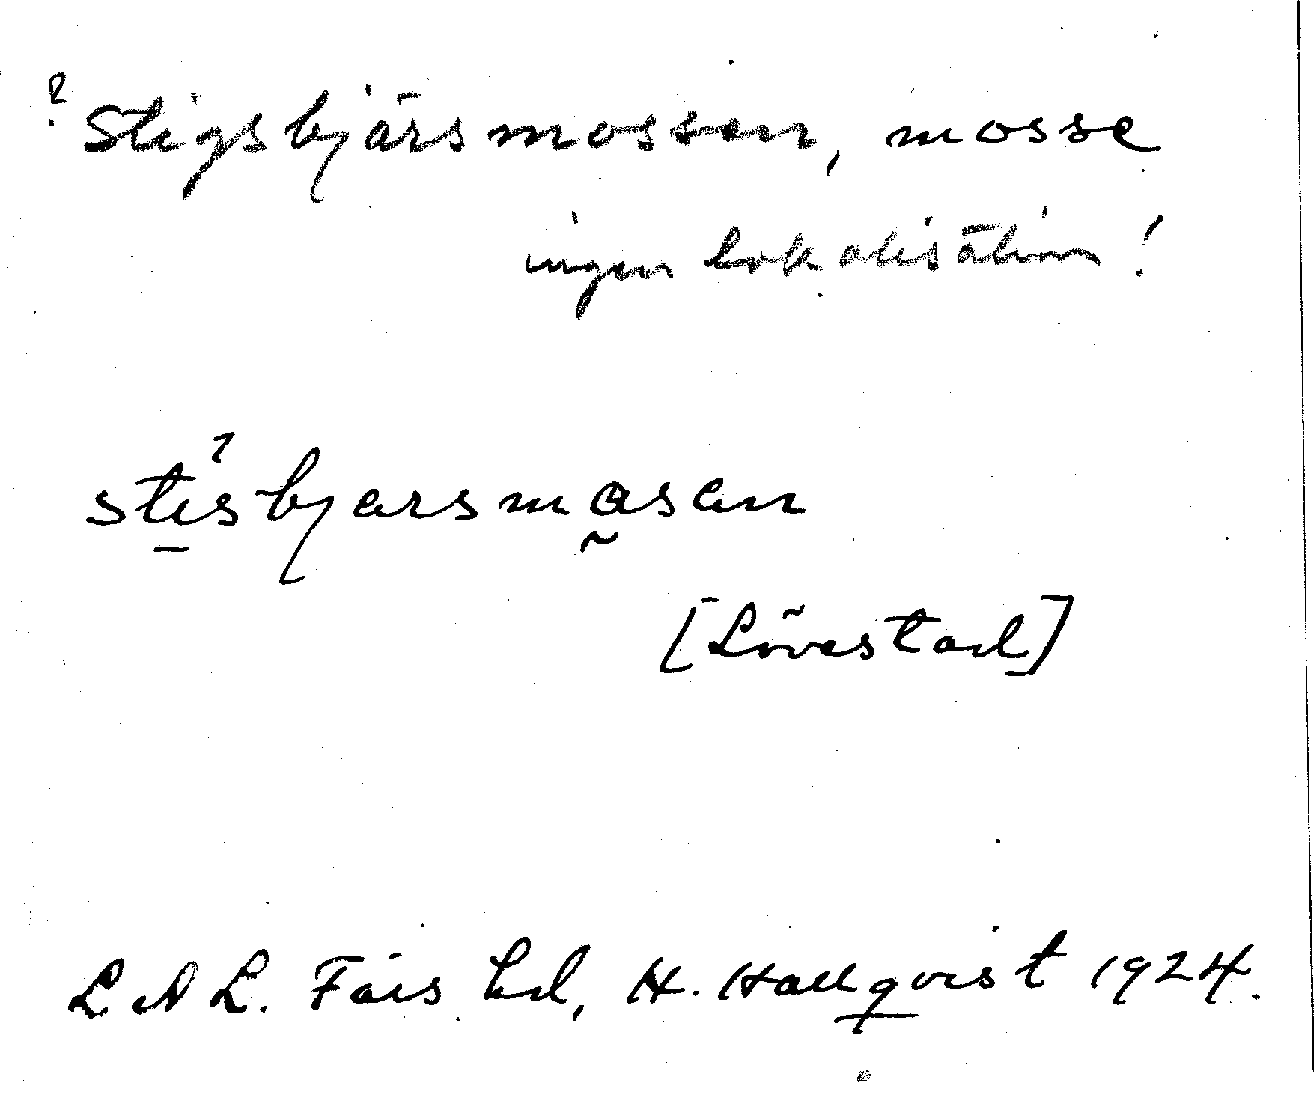 ? Stigsbjärsmossen, mosse
ingen lokalisation!
stisbjarsmasan
[Lövestad]
L A L. Färs hd, H. Hallqvist 1924.